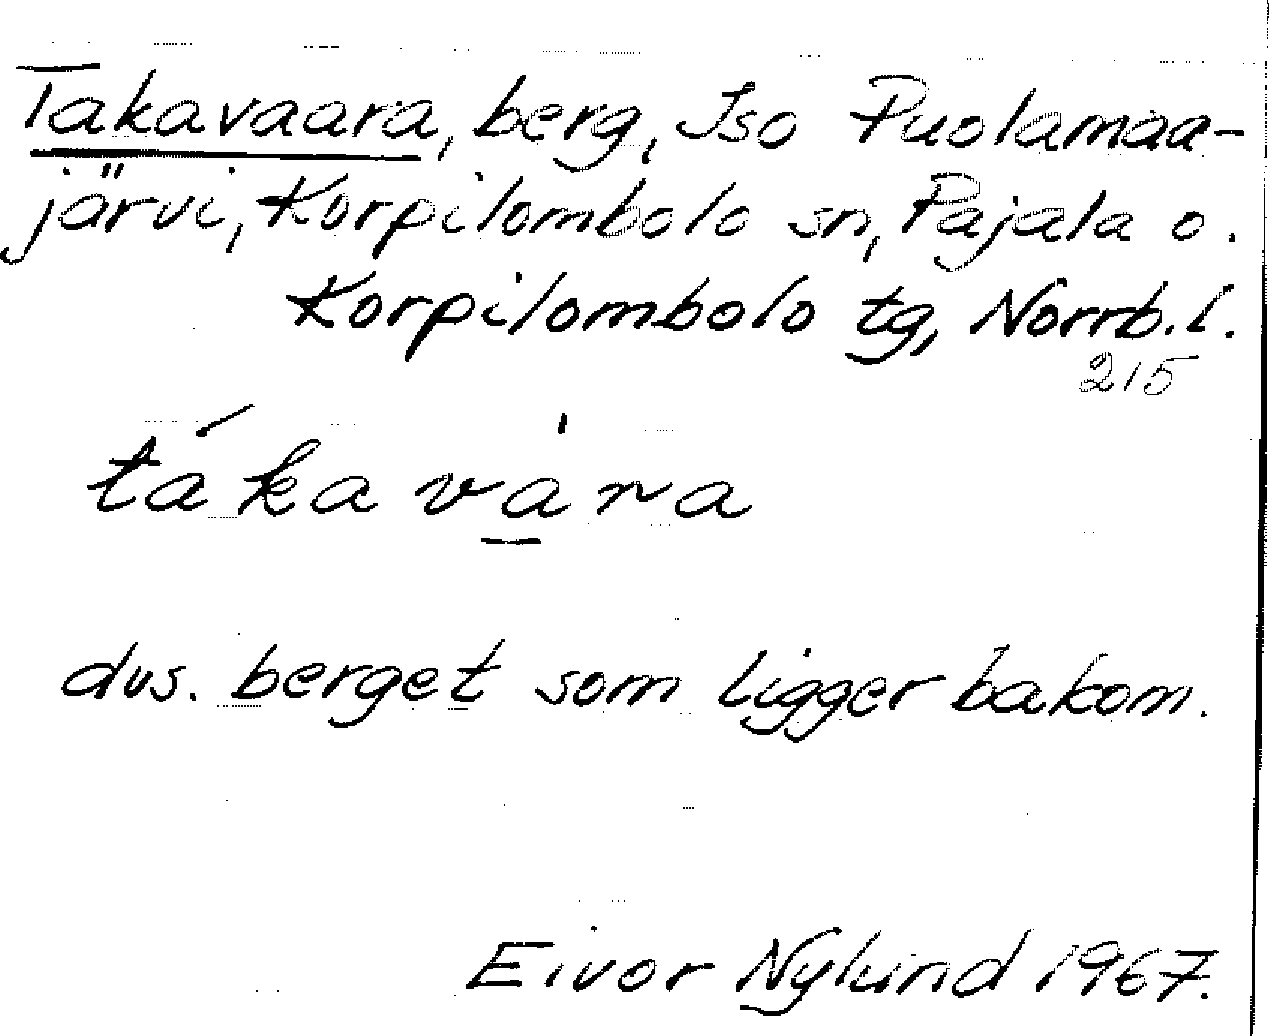 Takavaara, berg, Iso Puolamaa-
järvi, Korpilombolo sn, Pajala o.
Korpilombolo tg, Norrb.l.
215
tákava̱̍ra
dvs. berget som ligger bakom.
Eivor Nylund 1967.